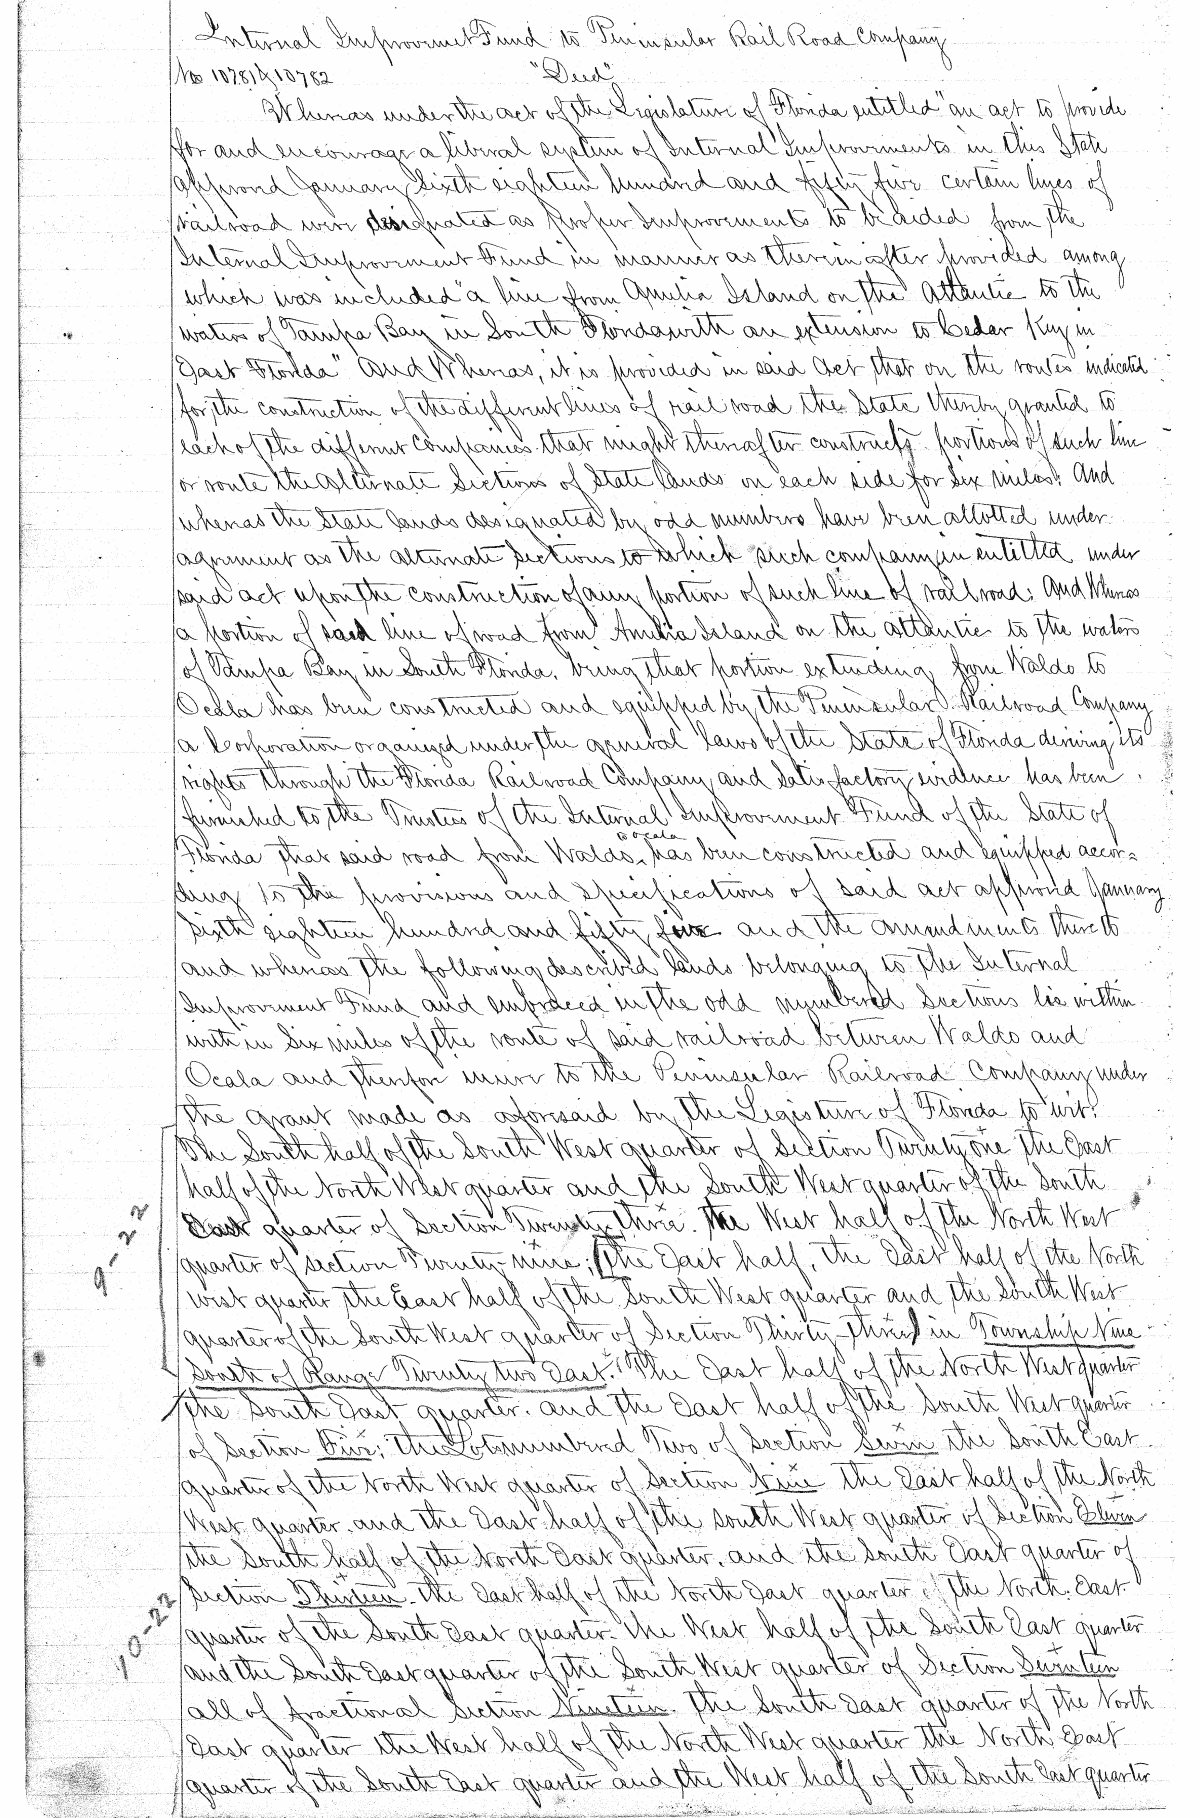 Internal Improvmet Fund to Peninsular Rail Road Company
No 10781 & 10782 "Deed"
Whereas under the act of the Legislature of Florida entitled "an act to provide
for and encourage a liberal system of Internal Improvements in this State
approved January Sixth eighteen hundred and fifty five certain lines of
railroad were designated as proper Improvements to be aided from the
Internal Improvement Fund in manner as therein after provided among
which was included "a line from Amelia Island on the Atlantic to the
waters of Tampa Bay in South Florida with an extension to Cedar Key in
East Florida" And Whereas, it is provided in said Act that on the routes indicated
for the construction of the different lines of rail road the State thereby granted to
each of the different Companies that might thereafter construct portions of such line
or route the Alternate Sections of State lands on each side for Six miles: And
whereas the State lands designated by odd numbers have been allotted under
agreement as the alternate sections to which such company in entitled under
said act upon the construction of any portion of such line of railroad: And Whereas
a portion of said line of road from Amelia Island on the Atlantic to the waters
of Tampa Bay in South Florida, being that portion extending from Waldo to
Ocala has been constructed and equipped by the Peninsular Railroad Company
a Corporation organized under the general laws of the State of Florida deriving its
rights through the Florida Railroad Company and satisfactory evidence has been
furnished to the Trustees of the Internal Improvement Fund of the State of
Florida that said road from Waldo to Ocala has been constructed and equipped accor=
ding to the provisions and specifications of said act approved January
Sixth eighteen hundred and fifty five and the amendments thereto
and whereas the following described lands belonging to the Internal
Improvement Fund and embraced in the odd numbered Sections lie within
with in Six miles of the route of said railroad between Waldo and
Ocala and therefore inure to the Peninsular Railroad Company under
the grant made as aforesaid by the Legisture of Florida to wit:
The South half of the South West quarter of Section Twenty one the East
half of the North West quarter and the South West quarter of the South
East quarter of Section Twenty three. The West half of the North West
quarter of section Twenty-nine; The East half, the East half of the North
west quarter the East half of the South West quarter and the South West
9-22
quarter of the South West quarter of Section Thirty three in Township Nine
South of Range Twenty two East. The East half of the North West quarter
the South East quarter. and the East half of the South West quarter
of Section Five; the Lot numbered Two of Section Seven the South East
quarter of the North West quarter of Section Nine the East half of the North
West quarter. and the East half of the South West quarter of Section Eleven
the South half of the North East quarter. and the South East quarter of
Section Thirteen. the East half of the North East quarter of the North East
quarter of the South East quarter. the West half of the South East quarter
10-22
and the South East quarter of the South West quarter of Section Seventeen
all of fractional Section Nineteen. The South East quarter of the North
East quarter the West half of the North West quarter the North East
quarter of the South East quarter and the West half of the South East quarter